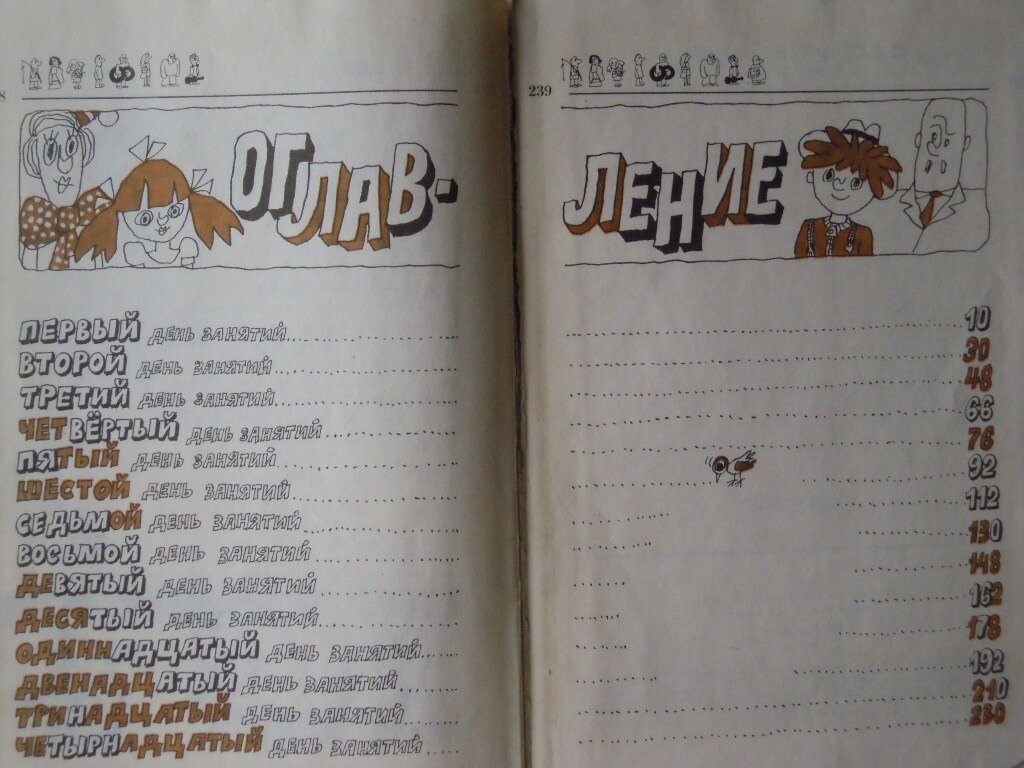 8
239
ОГЛАВ-
ЛЕНИЕ
ПЕРВЫЙ ДЕНЬ ЗАНЯТИЙ 10
ВТОРОЙ ДЕНЬ ЗАНЯТИЙ 30
ТРЕТИЙ ДЕНЬ ЗАНЯТИЙ 48
ЧЕТВЁРТЫЙ ДЕНЬ ЗАНЯТИЙ 66
ПЯТЫЙ ДЕНЬ ЗАНЯТИЙ 76
ШЕСТОЙ ДЕНЬ ЗАНЯТИЙ 92
СЕДЬМОЙ ДЕНЬ ЗАНЯТИЙ 112
ВОСЬМОЙ ДЕНЬ ЗАНЯТИЙ 130
ДЕВЯТЫЙ ДЕНЬ ЗАНЯТИЙ 148
ДЕСЯТЫЙ ДЕНЬ ЗАНЯТИЙ 162
ОДИННАДЦАТЫЙ ДЕНЬ ЗАНЯТИЙ 178
ДВЕНАДЦАТЫЙ ДЕНЬ ЗАНЯТИЙ 192
ТРИНАДЦАТЫЙ ДЕНЬ ЗАНЯТИЙ 210
ЧЕТЫРНАДЦАТЫЙ ДЕНЬ ЗАНЯТИЙ 230